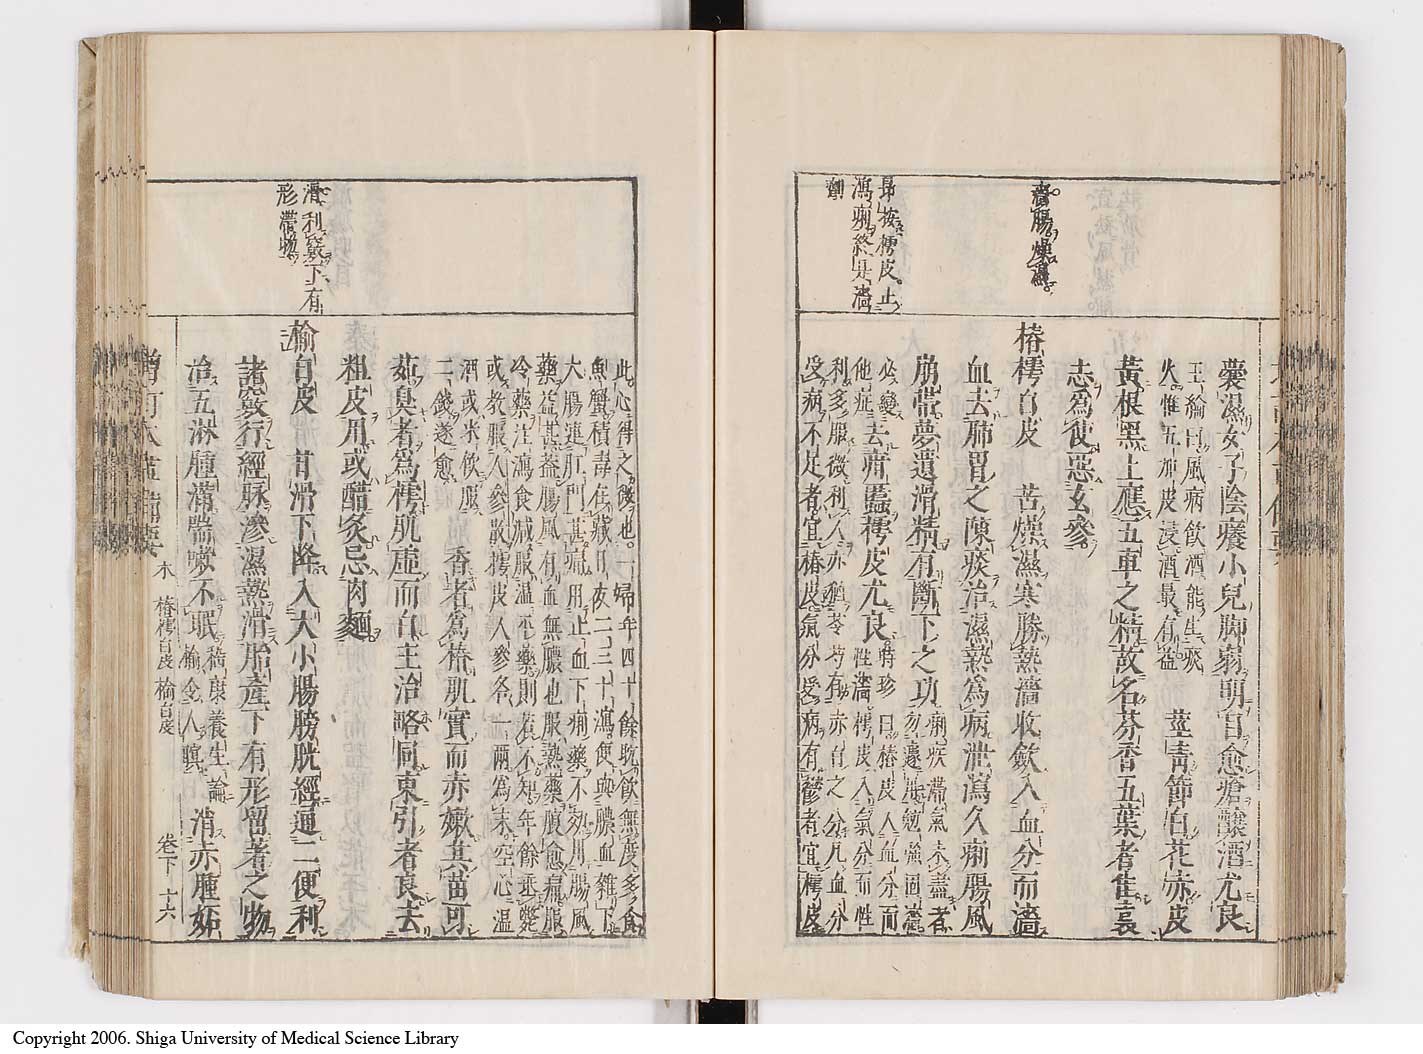 嚢濕女子陰癢小兒脚弱明目愈瘡釀酒尤良
王綸曰風病飲酒能生痰
火惟五加皮浸酒最有益
莖青節白花赤皮
黃根黑上應五車之精故名芬香五葉者佳遠
志爲使惡玄參
澀腸燥濕
椿樗白皮 苦燥濕寒勝熱濇收斂入血分而濇
血去肺胃之陳痰治濕熱爲病泄瀉久痢腸風
崩帶夢遺滑精有斷下之功
痢疾滯氣未盡者
勿遽 勉強固濇
必變
他症
去疳䘌樗皮尤良
時珍曰椿皮入血分而
性濇樗皮入氣分而性
利多服微利人亦猶芩芍有赤白之分凡血分
受病不足者宜椿皮氣分受病有鬱者宜樗皮
昂按樗皮止
瀉痢終是濇
劑
此心得之微也一婦年四十餘耽飲無度多食
魚蟹積毒在臟日夜二三十瀉便與膿血雜下
大腸連肛門甚痛用止血下痢藥不效用腸風
藥益甚蓋腸風有血無膿也服熱藥腹愈痛服
冷藥注瀉食減服溫平藥則若不知年餘垂斃
或教服人參散樗皮人參各一兩爲末空心溫
酒或米飲服
二錢遂愈
香者爲椿肌實而赤嫩其苗可
茹臭者爲樗肌虛而白主治略同東引者良去
粗皮用或醋炙忌肉麵
滑利竅下有
形滯物
榆白皮 甘滑下降入大小腸膀胱經通二便利
諸竅行經脉滲濕熱滑胎產下有形留著之物
治五淋腫滿喘嗽不眠
嵇康養生論
榆令人瞑
消赤腫妬
增訂本草備要 木 椿樗白皮 榆白皮 卷下 十六